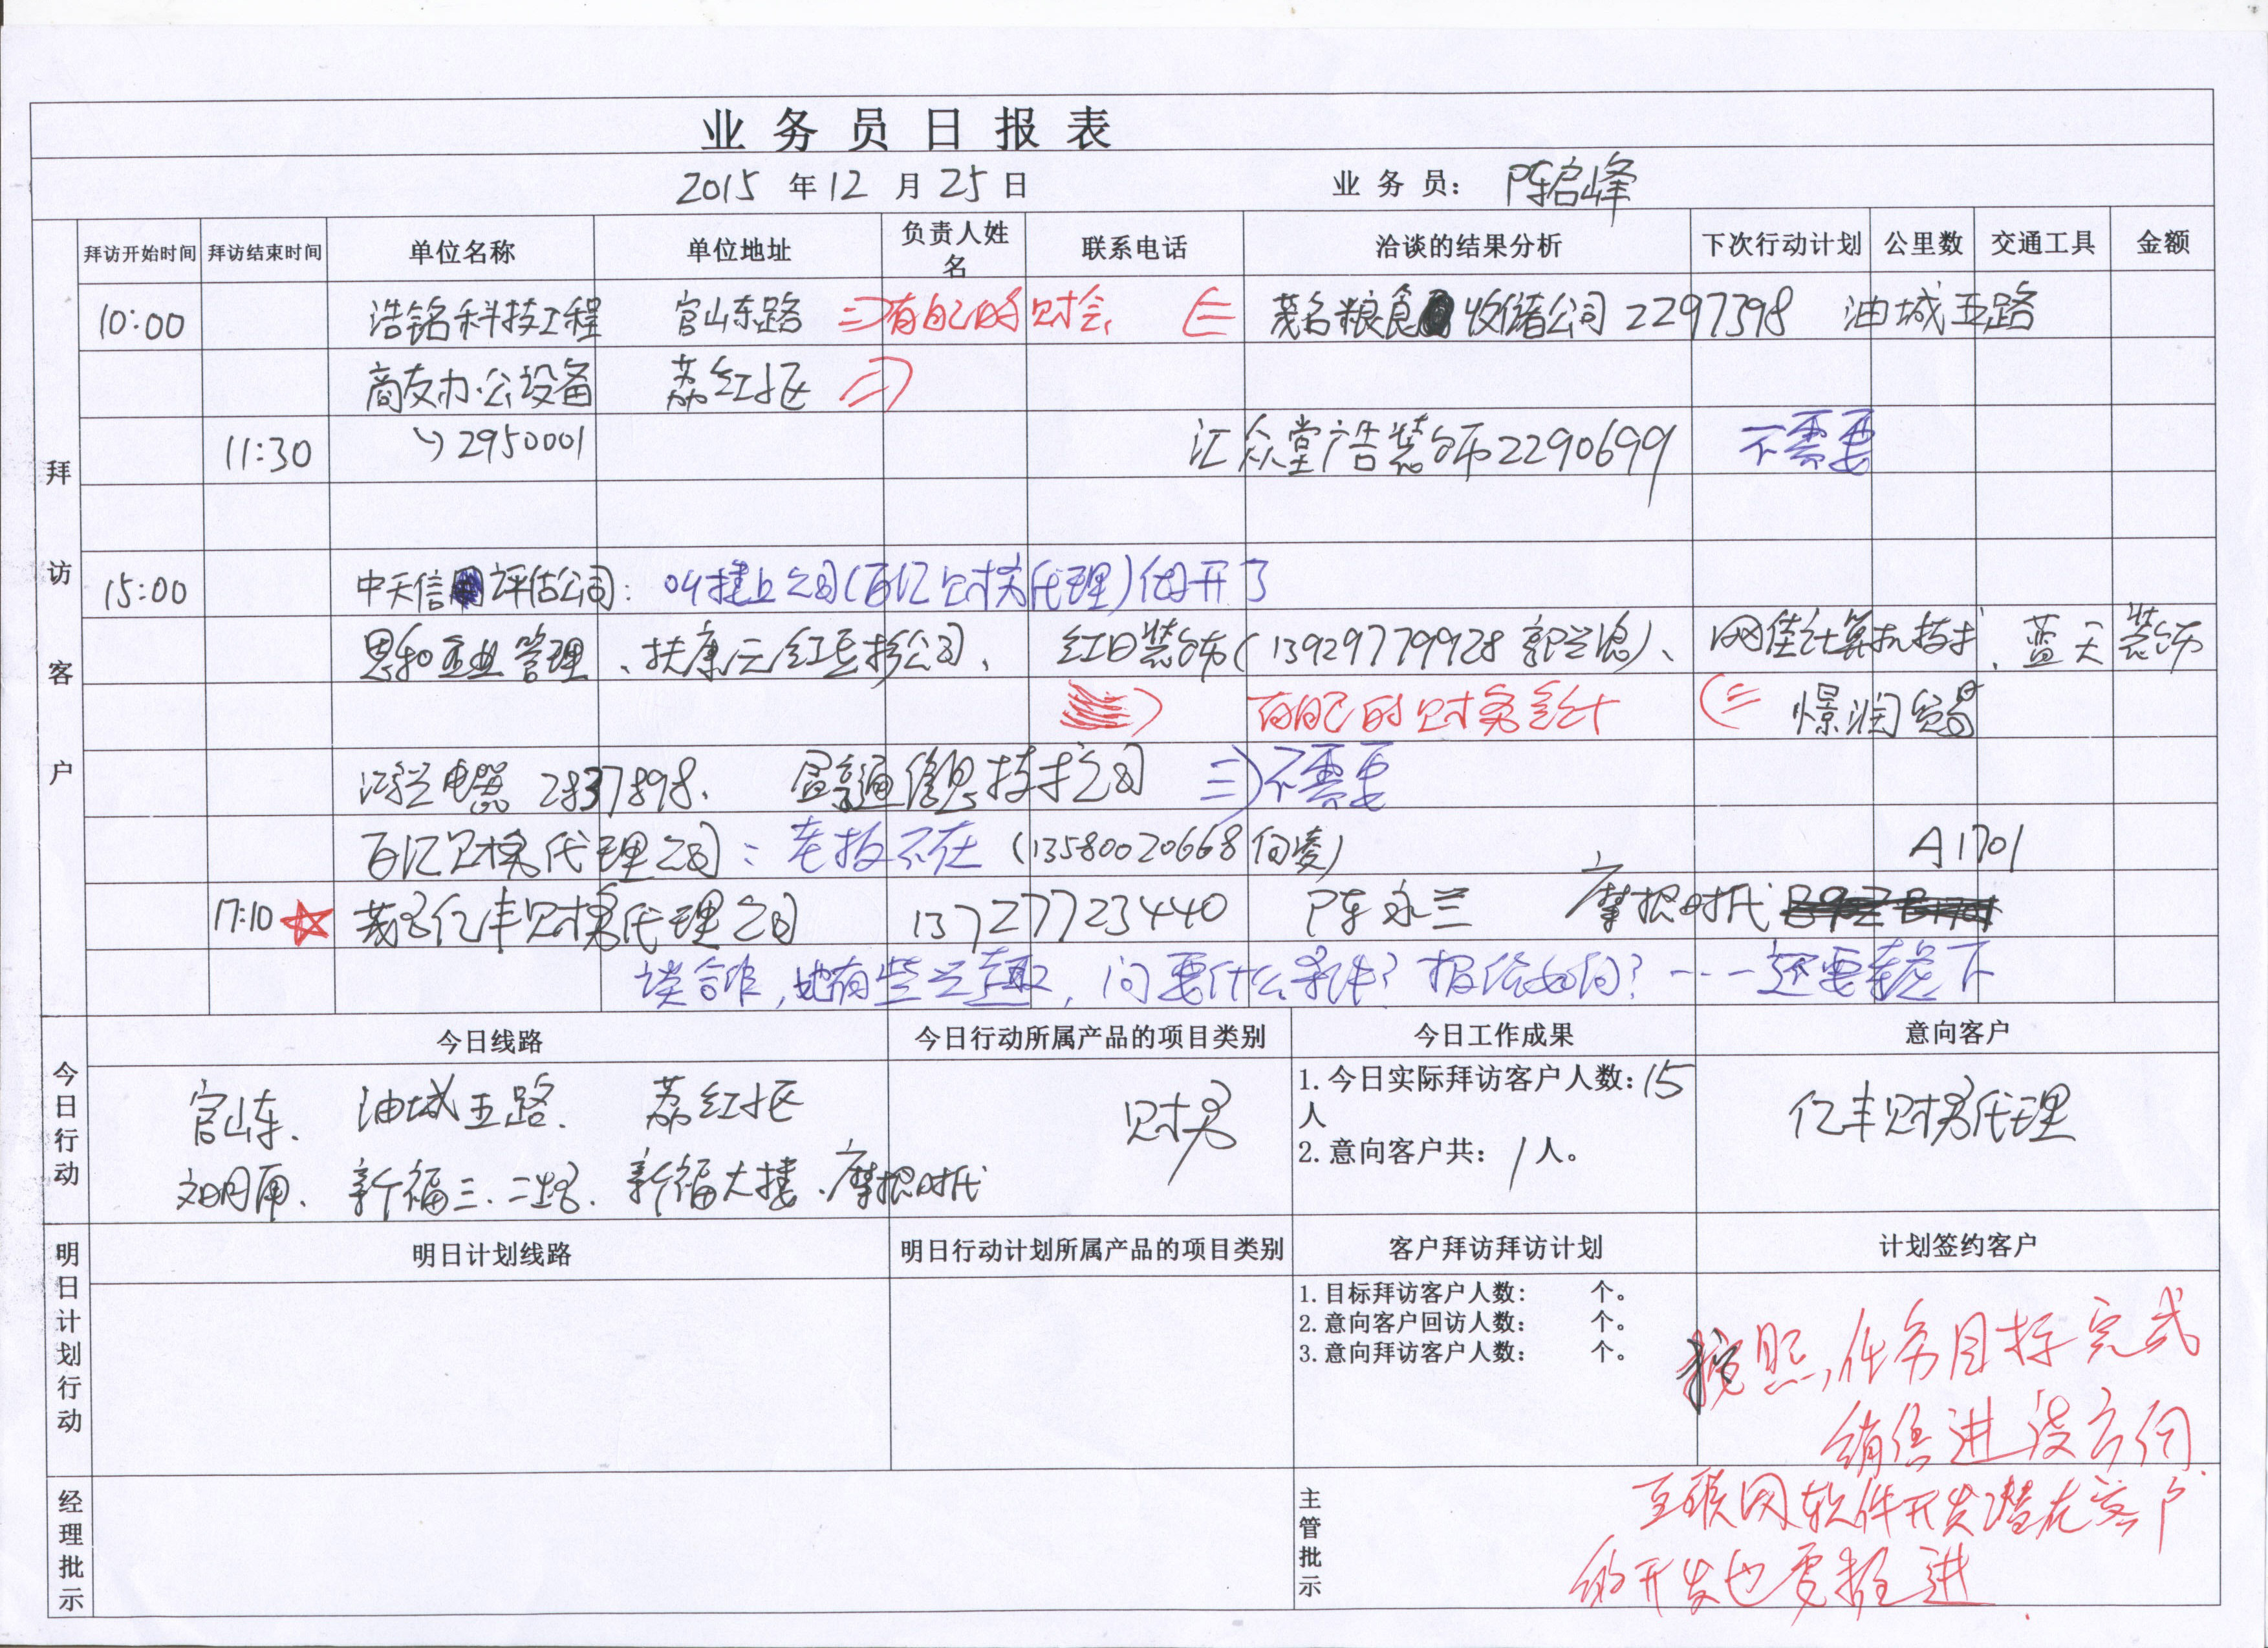 业务员日报表
2015 年 12 月 25 日 业务员： 陈启峰
拜访客户
拜访开始时间 拜访结束时间 单位名称 单位地址 负责人姓名 联系电话 洽谈的结果分析 下次行动计划 公里数 交通工具 金额
10:00 浩铭科技工程 官山东路 有自己的财会 茂名粮食收储公司 2297398 油城五路
商友办公设备 荔红区
11:30 2950001 汇众堂广告装饰2290699 不需要
15:00 中天信评估公司： 叫楼上公司(百亿财务代理)代开了
思和企业管理、扶康云红公司、 红日装饰(13929779928 郭)、网佳计算机技术、蓝天装饰
有自己的财务会计 憬润贸易
鸿兴电器 2837898、 富享通信息技术公司 不需要
百亿财务代理公司：老板不在 (13580020668 何凌) A1701
17:10 茂名亿丰财务代理公司 13727723440 陈永兰 摩根时代
谈合作,她有些兴趣,问要什么条件?报价如何?---还要考虑下
今日行动
今日线路 今日行动所属产品的项目类别 今日工作成果 意向客户
官山东、油城五路、荔红区 财务 1.今日实际拜访客户人数：15 亿丰财务代理
人
文明甫、新福三、二路、新福大楼、摩根时代 2.意向客户共： 1 人。
明日计划行动
明日计划线路 明日行动计划所属产品的项目类别 客户拜访拜访计划 计划签约客户
1.目标拜访客户人数： 个。
2.意向客户回访人数： 个。
3.意向拜访客户人数： 个。
按照,任务目标完成
销售进设方向
经理批示 主管批示
互联网软件开发潜在客户
的开发也要推进.